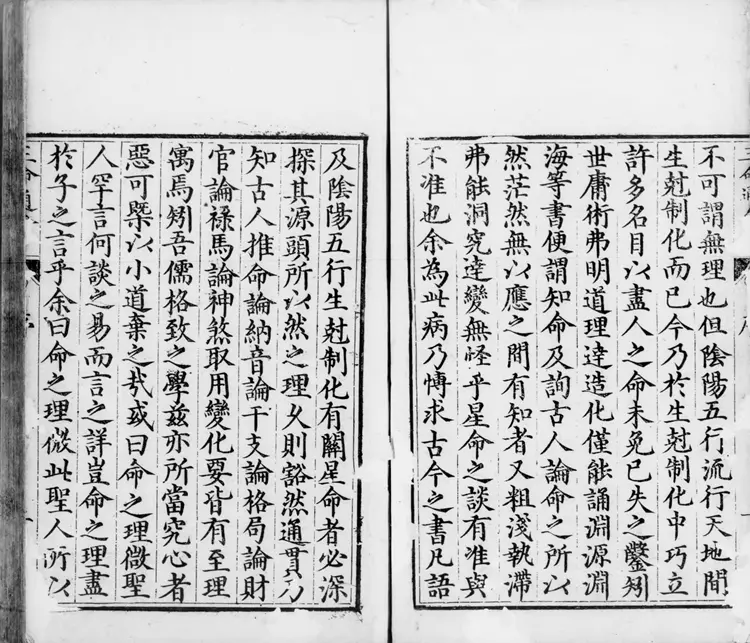 不可謂無理也但陰陽五行流行天地間
生尅制化而已今乃於生尅制化中巧立
許多名目以盡人之命未免已失之鑿矧
世庸術弗明道理達造化僅能誦淵源淵
海等書便謂知命及詢古人論命之所以
然茫然無以應之間有知者又粗淺執滯
弗能洞究達變無怪乎星命之談有准與
不准也余為此病乃愽求古今之書凡語
及陰陽五行生尅制化有關星命者必深
探其源頭所以然之理久則豁然通貫乃
知古人推命論納音論干支論格局論財
官論祿馬論神煞取用變化要皆有至理
寓焉矧吾儒格致之學兹亦所當究心者
惡可槩以小道棄之哉或曰命之理微聖
人罕言何談之易而言之詳豈命之理盡
於子之言乎余曰命之理微此聖人所以